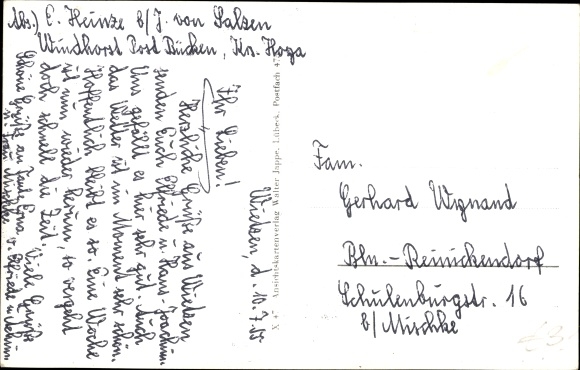 Abs.) E. Heinze b/J. von Salzen
Windhorst Post Bücken, Kr. Hoya
Wietzen, d. 10.7.
Ihr Lieben!
Herzliche Grüße aus Wietzen
senden Euch Elfriede u. Hans-Joachim
Uns gefällt es hier sehr gut. Auch
das Wetter ist im Moment sehr schön.
Hoffentlich bleibt es so. Eine Woche
ist nun wieder herum, so vergeht
doch schnell die Zeit. Viele Grüße
Schöne Grüße an Tante Erna v. Elfriede u.
u. Frau Mischke
X 47 Ansichtskartenverlag Walter Jappe, Lübeck, Postfach 47
Fam.
Gerhard Wignand
Bln.-Reinickendorf
Schulenburgstr. 16
b/Mischke